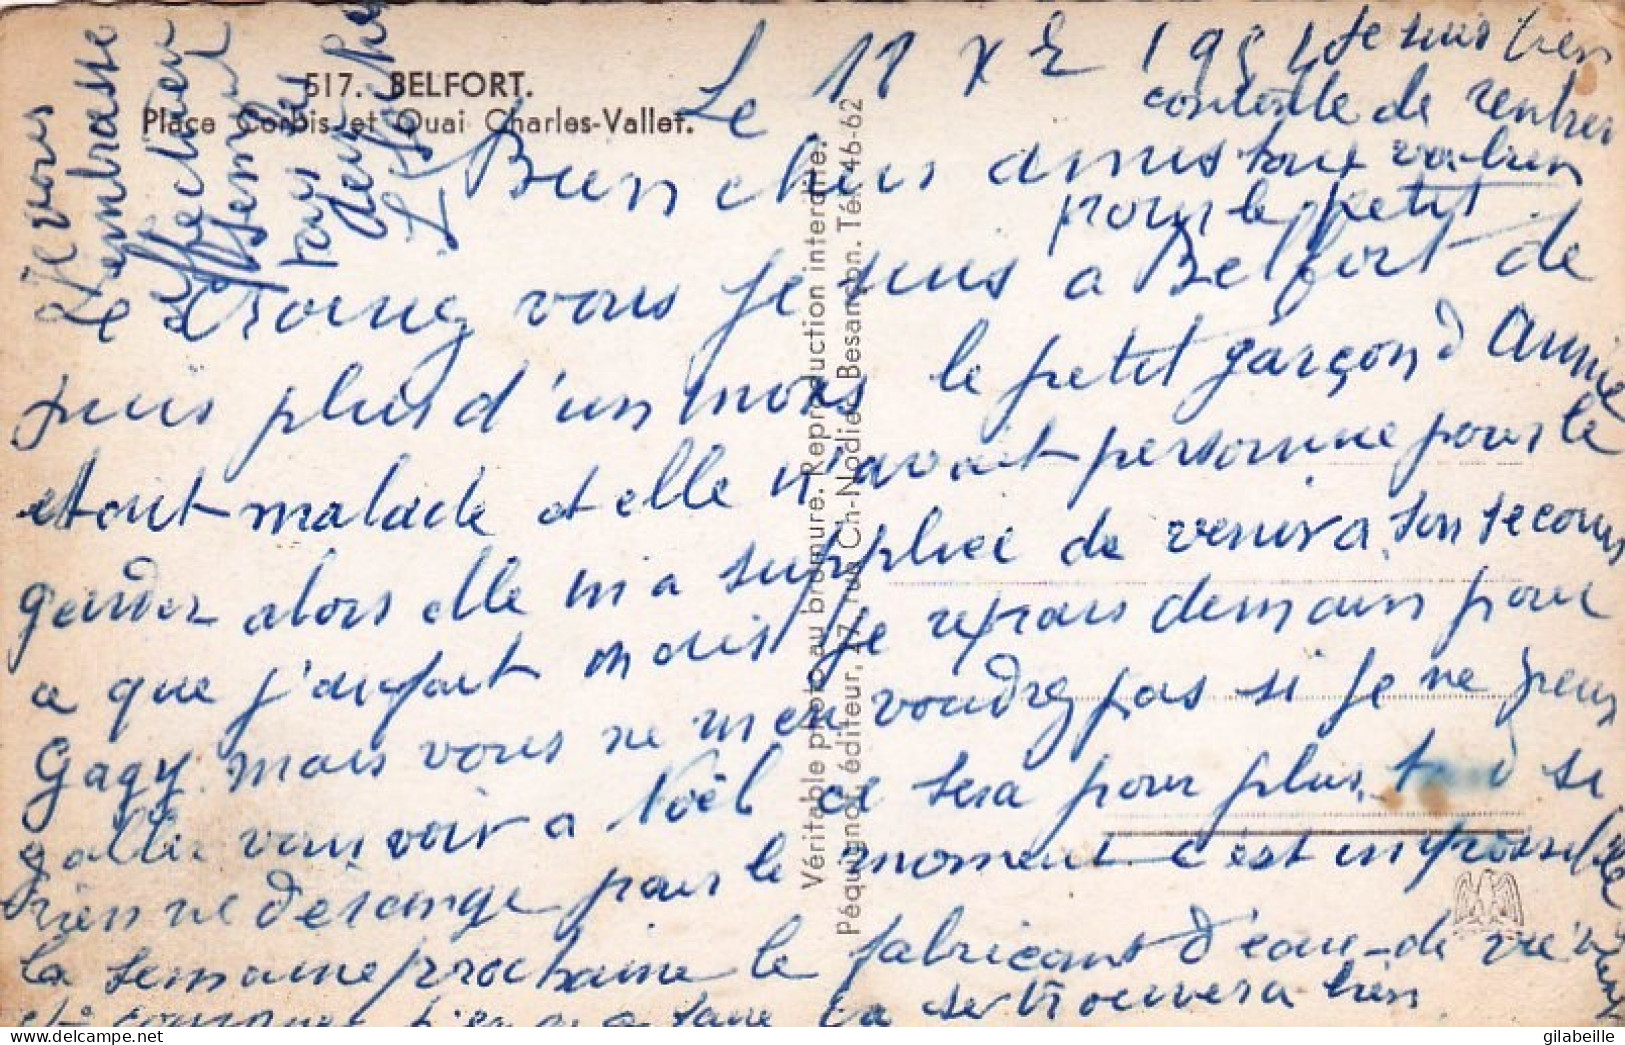 517. BELFORT.
Place Corbis et Quai Charles-Vallet.
Le 11 X E 1954
Bien chers amis
croirez vous je suis a Belfort de
puis plus d'un mois le petit garçon d Annie
etait malade et elle n'avait personne pour le
garder alors elle m'a suppliee de venir a son secours
a que j'ai fait mais je repars demain pour
Gagy mais vous ne m'en voudrez pas si je ne peux
aller vous voir a Noël ce sera pour plus tard si
rien ne dérange pour le moment c'est impossible
la semaine prochaine le fabricant d'eau-de vie vient
et comme j'en ai a faire ça se trouvera bien
Je suis bien
contente de rentrer
tout va bien
pour le petit
Je vous
embrasse
affectueu
sement
tous les
deux
Véritable photo au bromure. Reproduction interdite.
Péquignot, éditeur, 47, rue Ch-Nodier, Besançon. Tél. 46-62
gilabeille